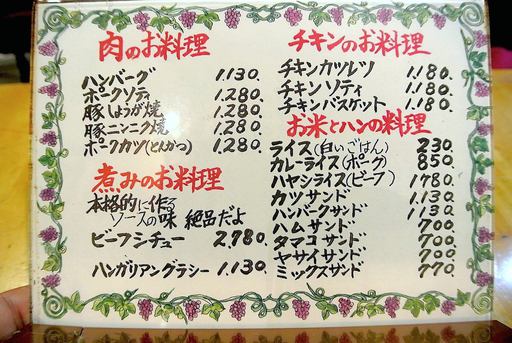 肉のお料理
ハンバーグ 1.130.
ポークソティ 1.280.
豚しょうが焼 1.280.
豚ニンニク焼 1.280.
ポークカツ(とんかつ) 1.280.
煮みのお料理
本格的に作る
ソースの味 絶品だよ
ビーフシチュー 2.780.
ハンガリアングラシー 1.130.
チキンのお料理
チキンカツレツ 1.180.
チキン ソティ 1.180.
チキンバスケット 1.180.
お米とハンの料理
ライス(白いごはん) 230.
カレーライス(ポーク) 850.
ハヤシライス(ビーフ) 1780.
カツ サンド 1.130.
ハンバークサンド 1.130.
ハム サンド 700.
タマコ サンド 700.
ヤサイ サンド 700.
ミックスサンド 770.